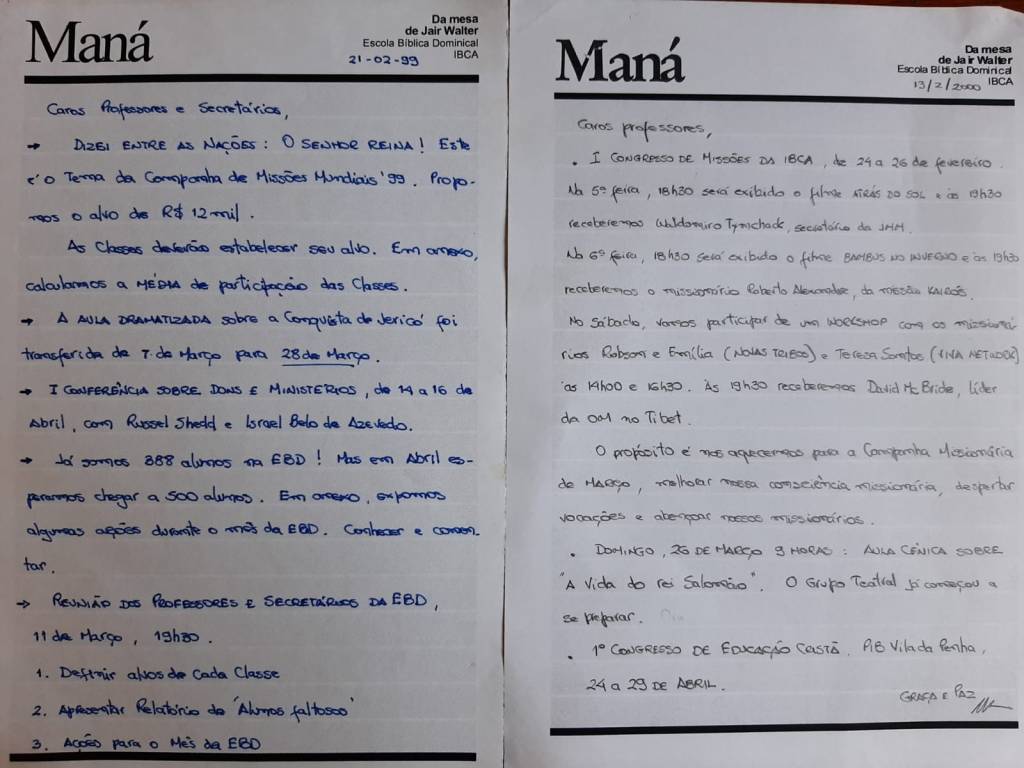 Maná
Da mesa
de Jair Walter
Escola Bíblica Dominical
IBCA
21-02-99
Caros Professores e Secretários,
→ DIZEI ENTRE AS NAÇÕES: O SENHOR REINA! Este
é o Tema da Campanha de Missões Mundiais '99. Propo-
mos o alvo de R$ 12 mil.
As Classes deverão estabelecer seu alvo. Em anexo,
calculamos a MÉDIA de participação das Classes.
→ A AULA DRAMATIZADA sobre a Conquista de Jericó foi
transferida de 7 de Março para 28 de Março.
→ I CONFERÊNCIA SOBRE DONS E MINISTÉRIOS, de 14 a 16 de
Abril, com Russel Shedd e Israel Belo de Azevedo.
→ Já somos 388 alunos na EBD! Mas em Abril es-
peramos chegar a 500 alunos. Em anexo, expomos
algumas ações durante o mês da EBD. Conhecer e comen-
tar.
→ REUNIÃO DOS PROFESSORES E SECRETÁRIOS DA EBD,
11 de Março, 19h30.
1. Definir alvos de cada Classe
2. Apresentar Relatório de 'Alunos faltosos'
3. Ações para o Mês da EBD
Maná
Da mesa
de Jair Walter
Escola Bíblica Dominical
IBCA
13/2/2000
Caros professores,
• I CONGRESSO DE MISSÕES DA IBCA, de 24 a 26 de fevereiro.
Na 5ª feira, 18h30 será exibido o filme ATRÁS DO SOL e às 19h30
receberemos Waldomiro Tymchack, secretário da JMM.
Na 6ª feira, 18h30 será exibido o filme BAMBUS NO INVERNO e às 19h30
receberemos o missionário Roberto Alexander, da missão KAIRÓS.
No Sábado, vamos participar de um WORKSHOP com os missioná-
rios Robson e Emília (NOVAS TRIBOS) e Teresa Santos
às 14h00 e 16h30. Às 19h30 receberemos David Mc Bride, líder
da OM no Tibet.
O propósito é nos aquecermos para a Campanha Missionária
de MARÇO, melhorar nossa consciência missionária, despertar
vocações e abençoar nossos missionários.
• DOMINGO, 26 DE MARÇO 9 HORAS: AULA CÊNICA SOBRE
"A Vida do rei Salomão". O Grupo Teatral já começou a
se preparar.
• 1º CONGRESSO DE EDUCAÇÃO CRISTÃ. PIB Vila da Penha,
24 a 29 DE ABRIL.
GRAÇA E PAZ